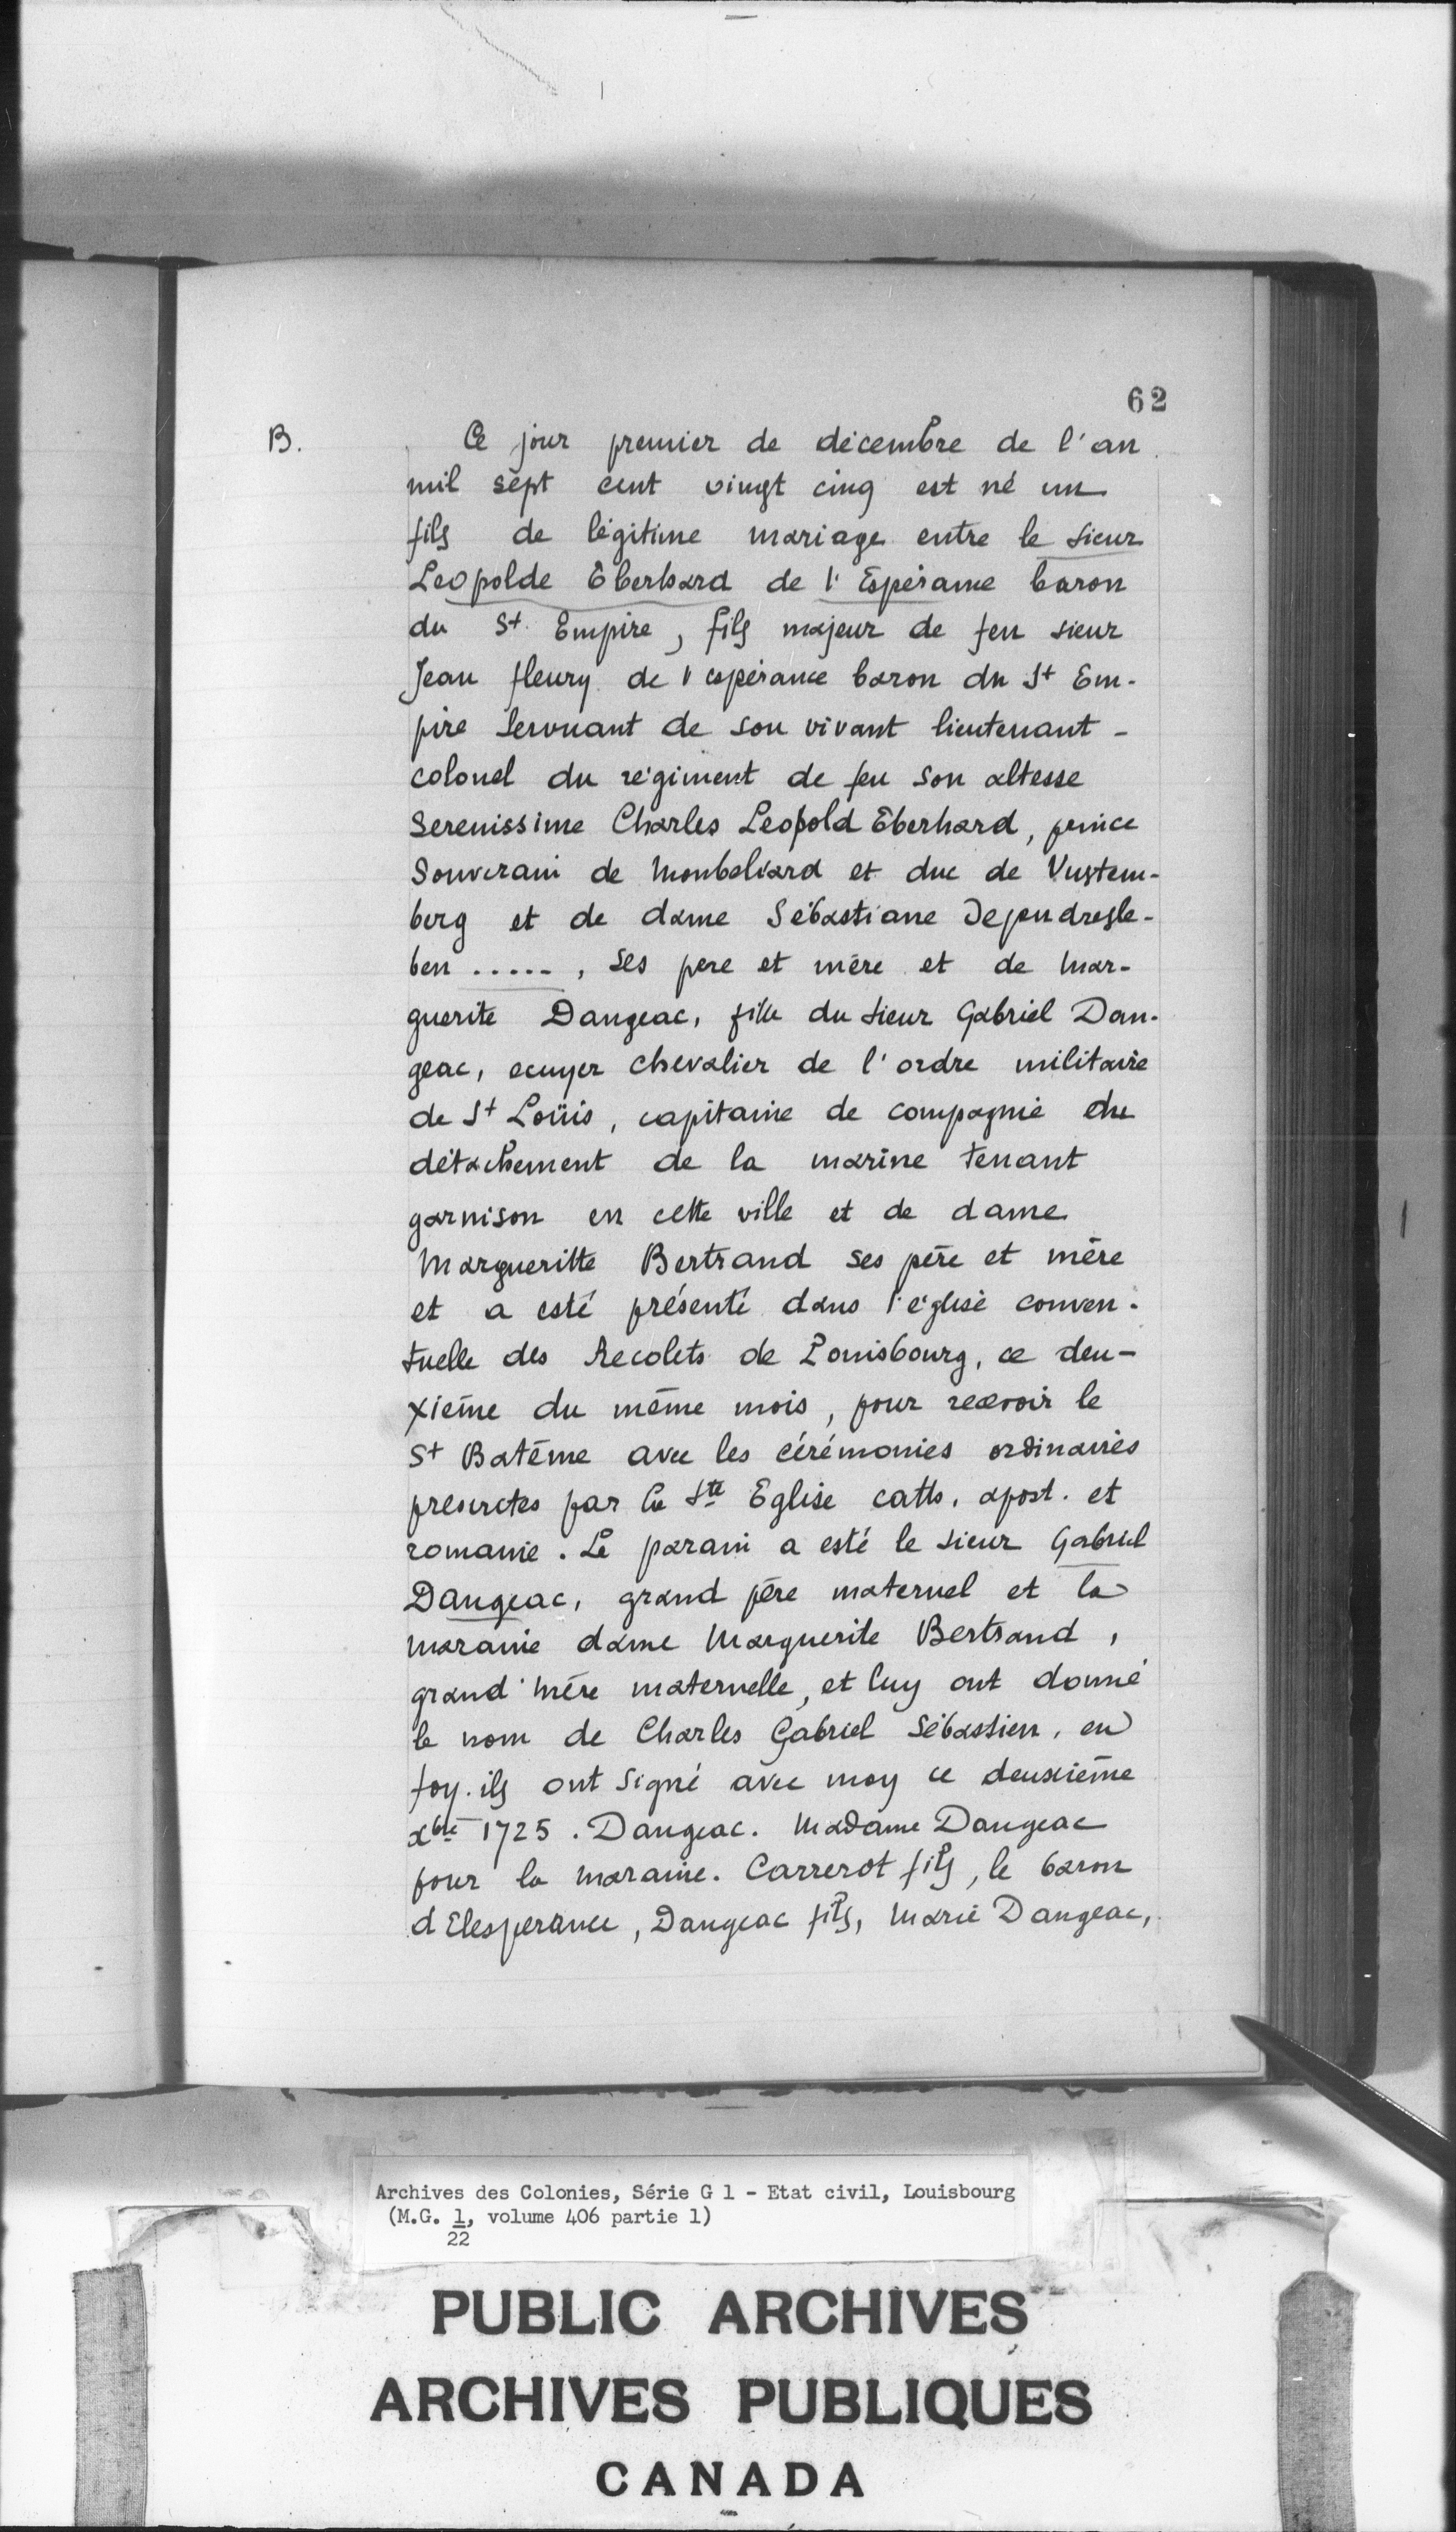 62
B. Ce jour premier de décembre de l'an
mil sept cent vingt cinq est né un
fils de légitime mariage entre le sieur
Leopolde Eberhard de l'Espérance baron
du St Empire, fils majeur de feu sieur
Jean fleury de l'espérance baron du St Em-
pire servuant de son vivant lieutenant-
colonel du régiment de feu son altesse
Serenissime Charles Leopold Eberhard, prince
Souverain de Monbeliard et duc de Vustem-
berg et de dame Sébastiane Dependresle-
ben ....., ses pere et mère et de Mar-
guerite Dangeac, fille du sieur Gabriel Dan-
geac, ecuyer chevalier de l'ordre militaire
de St Loüis, capitaine de compagnie du
détachement de la marine tenant
garnison en cette ville et de dame
Margueritte Bertrand ses père et mère
et a esté présenté dans l'église conven-
tuelle des Recolets de Louisbourg, ce deu-
xième du même mois, pour recevoir le
St Batême avec les cérémonies ordinaires
prescrctes par la Ste Eglise cath. apost. et
romaine. Le parain a esté le sieur Gabriel
Dangeac, grand père maternel et la
maraine dame Marguerite Bertrand,
grand'mère maternelle, et luy ont donné
le nom de Charles Gabriel Sébastien, en
foy. ils ont signé avec moy ce deuxième
xbre 1725. Dangeac. Madame Dangeac
pour la maraine. Carrerot fils, le baron
d Elesperance, Dangeac fils, Marie Dangeac,
Archives des Colonies, Série G 1 - Etat civil, Louisbourg
(M.G. 1, volume 406 partie 1)
22
PUBLIC ARCHIVES
ARCHIVES PUBLIQUES
CANADA